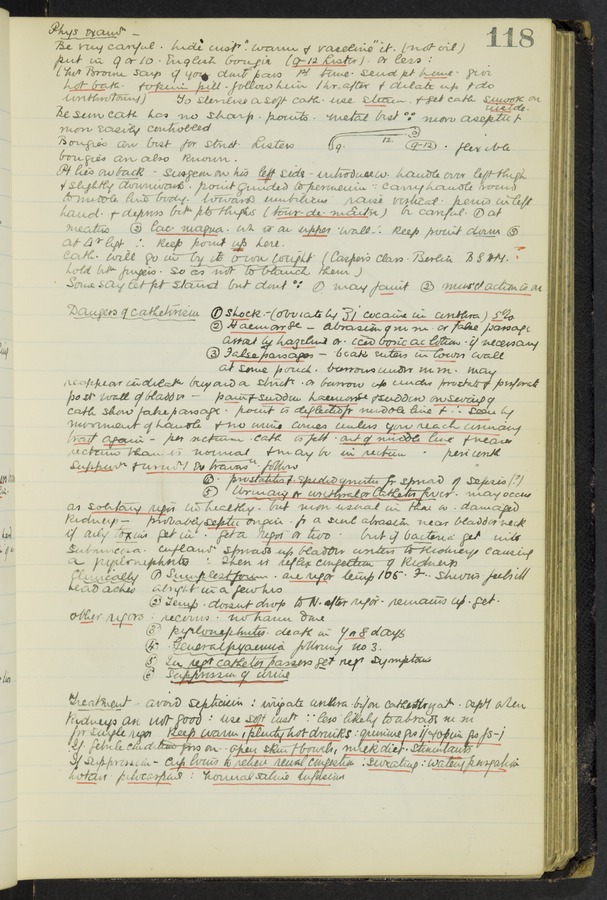 118
Phys exam -
Be very careful. hide inst. warm & vaseline it. (not oil)
put in 9 or 10 English bougie (9-12 Lister) or less:
(Thos Browne says if you dont pass 1st time send pt home give
hot bath + opium pill follow him 1 hr. after & dilate up & do
urethrotomy) To sterilise a soft cath use & get cath smooth on
inside.
Be sure cath has no sharp points. metal best ∵ more aseptic &
more easily controlled
Bougies are best for strict. Listers 9. 12. (9-12) flexible
bougies are also known.
Pt lies on back - Surgeon on his left side - introduce w. handle over left thigh
& slightly downwards. point guided to perineum: carry handle round
to middle line body. towards umbilicus raise vertical. penis in left
hand. & depress betw. pts thighs (tour-de-maitre) be careful. ① at
meatus ② lac magna. wh is on upper wall ∴ keep point down ③
at Δr ligt ∴ keep point up here.
Cath. will go in by its own weight (Caspers class. Berlin
hold betw fingers so as not to blanch them)
Some say let pt stand but dont ∵ ① may faint ② muscl action is on
Dangers of catheterism ① Shock - (obviate by ʒi cocaine in urethra) 5%
② Haemorrge - abrasion of m.m. or false passage
arrest by hazeline or iced boric ac lotion if necessary
③ False passages - beak enters in lower wall
at some pouch. burrows under m.m. may
reappear in dilatn beyond a strict. or burrow up under prostate & perforate
post wall of bladder - pain & sudden haemorrge & sudden
cath show false passage. point is deflected fr middle line & ∴ seen by
movement of handle & no urine comes unless you reach urinary
tract again - per rectum cath is felt out of middle line & nearer
rectum than is normal & may be in rectum. peri
Suppurn & urinl follow
④ prostatitis & epididymitis fr spread of sepsis (!)
⑤ Urinary or urethral or Catheter fever. may occur
as solitary rigor in healthy. but more usual in those w. damaged
kidneys - probably septic origin fr a small abrasion near bladder neck
if only toxins get in get a rigor or two but if bacteria get into
submucosa inflamn spreads up bladder ureters to kidneys causing
a pyelonephritis: then is reflex congestion of kidneys
Clinically ① Simplest form. one rigor temp 105° F. Shivers feels ill
head aches alright in a few hrs
② Temp. doesnt drop to N. after rigor. remains up. get
other rigors. recovers. no harm done
③ pyelonephritis. death in 7 or 8 days
④ General pyaemia following no 3.
⑤ In regr catheter passers get regr symptoms
⑥ Suppression of urine
Treatment - avoid septicism: irrigate urethra before cathetrs. esply when
kidneys are not good: use soft inst ∵ less likely to abrade m.m
for single rigor keep warm, plenty hot drinks. quinine
If febrile condition goes on - open skin & bowels, milk diet. Stimulants
If suppression - cup loins to relieve renal congestion: sweating: watery purgation
hot air pilocarpine: normal saline infusion